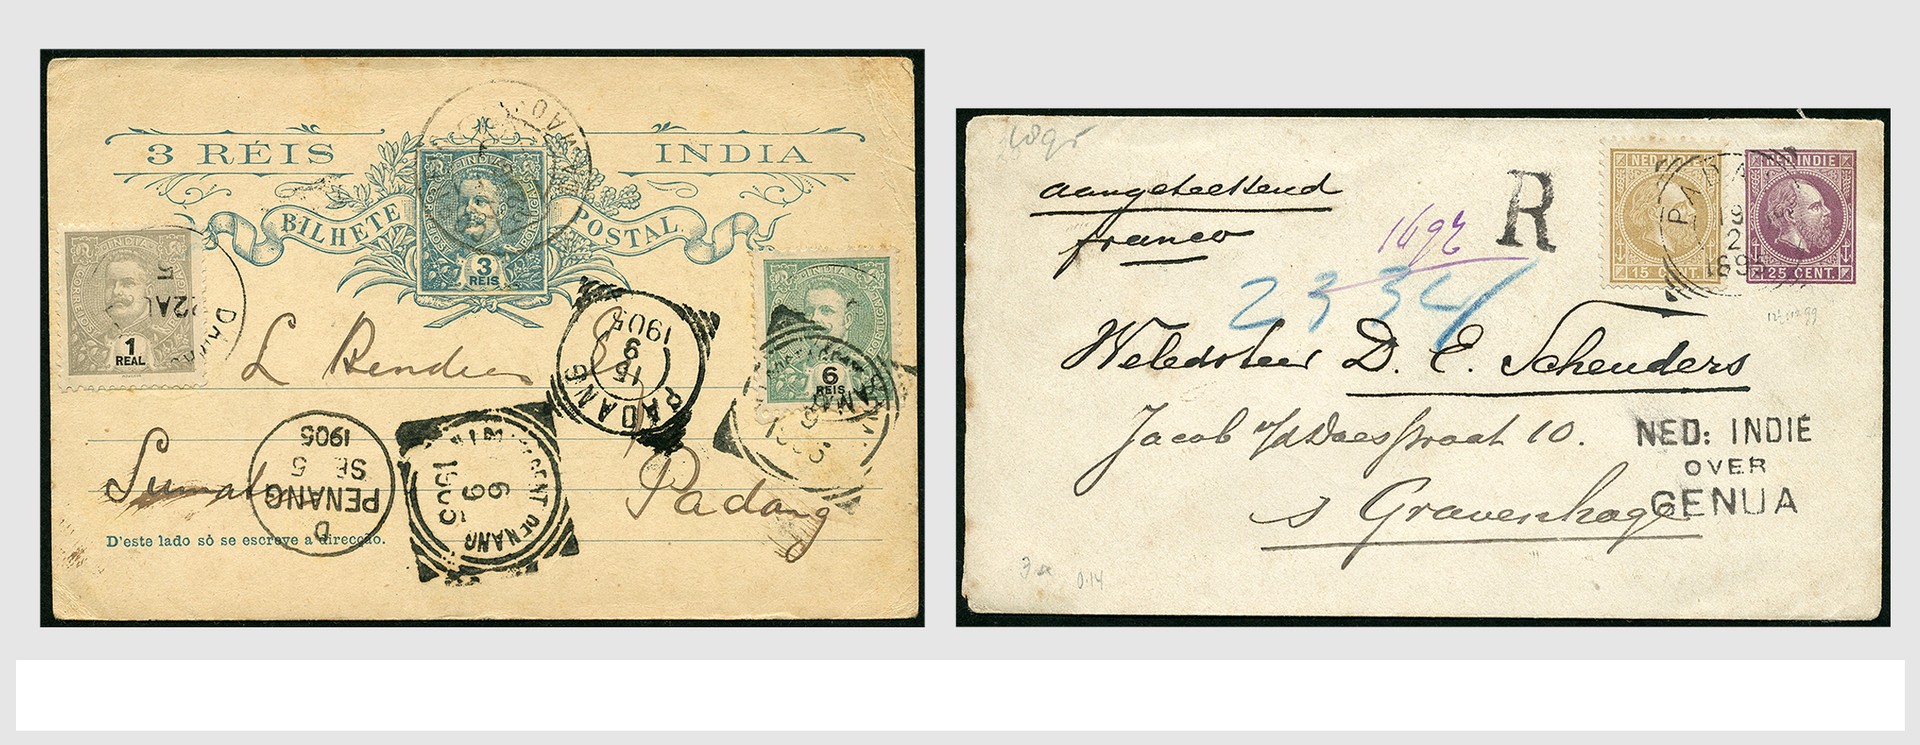 3 RÉIS
INDIA
BILHETE POSTAL
INDIA
CORREIOS
PORTUGAL
3
REIS
INDIA
CORREIOS
PORTUGAL
1
REAL
INDIA
CORREIOS
PORTUGAL
6
REIS
DAMAO
PADANG
15
9
1905
D
PENANG
SE 5
1905
AGENT PENANG
6
9
1905
L
Sumatra
Padang
D'este lado só se escreve a direcção.
aangeteekend
franco
1492
R
NED. INDIE
15 CENT.
NED. INDIE
25 CENT.
2334
D. E. Scheuders
Jacob v/d Doesstraat 10.
s Gravenhage
NED: INDIË
OVER
GENUA